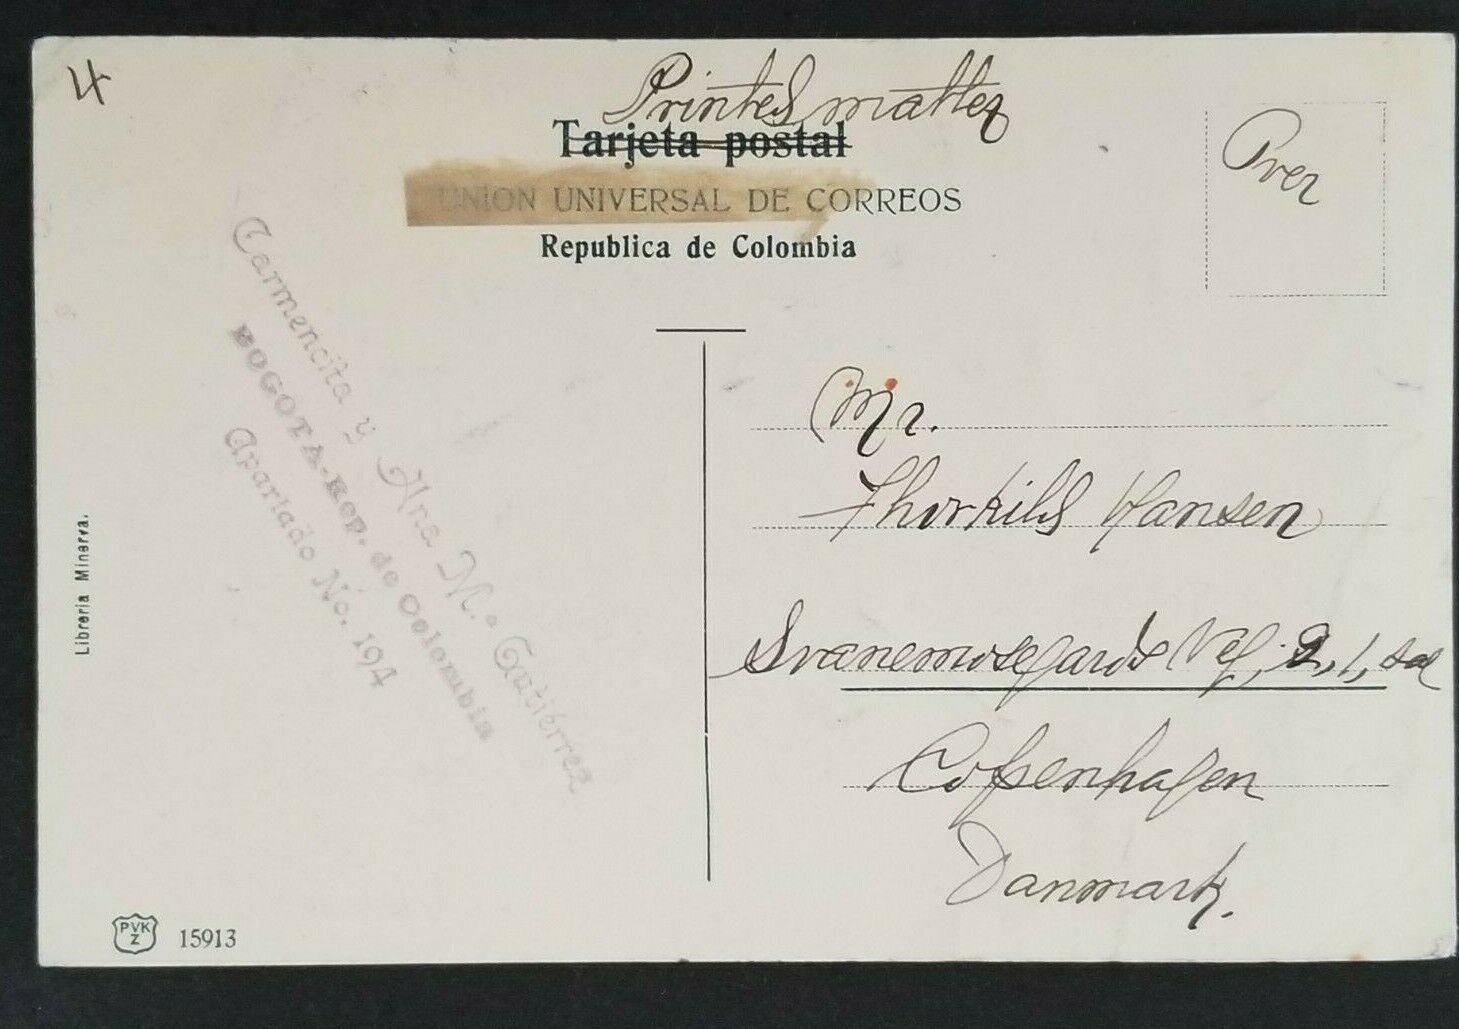 4
Printed matter
Tarjeta postal
UNION UNIVERSAL DE CORREOS
Republica de Colombia
Over
Carmencita y Ana M.a Gutiérrez
BOGOTA-REP. de Colombia
Apartado No. 194
Libreria Minerva.
Mr.
Thorkild Hansen
Svanemosegards Vej, 2, 1, sal
Copenhagen
Danmark.
PVK
Z
15913